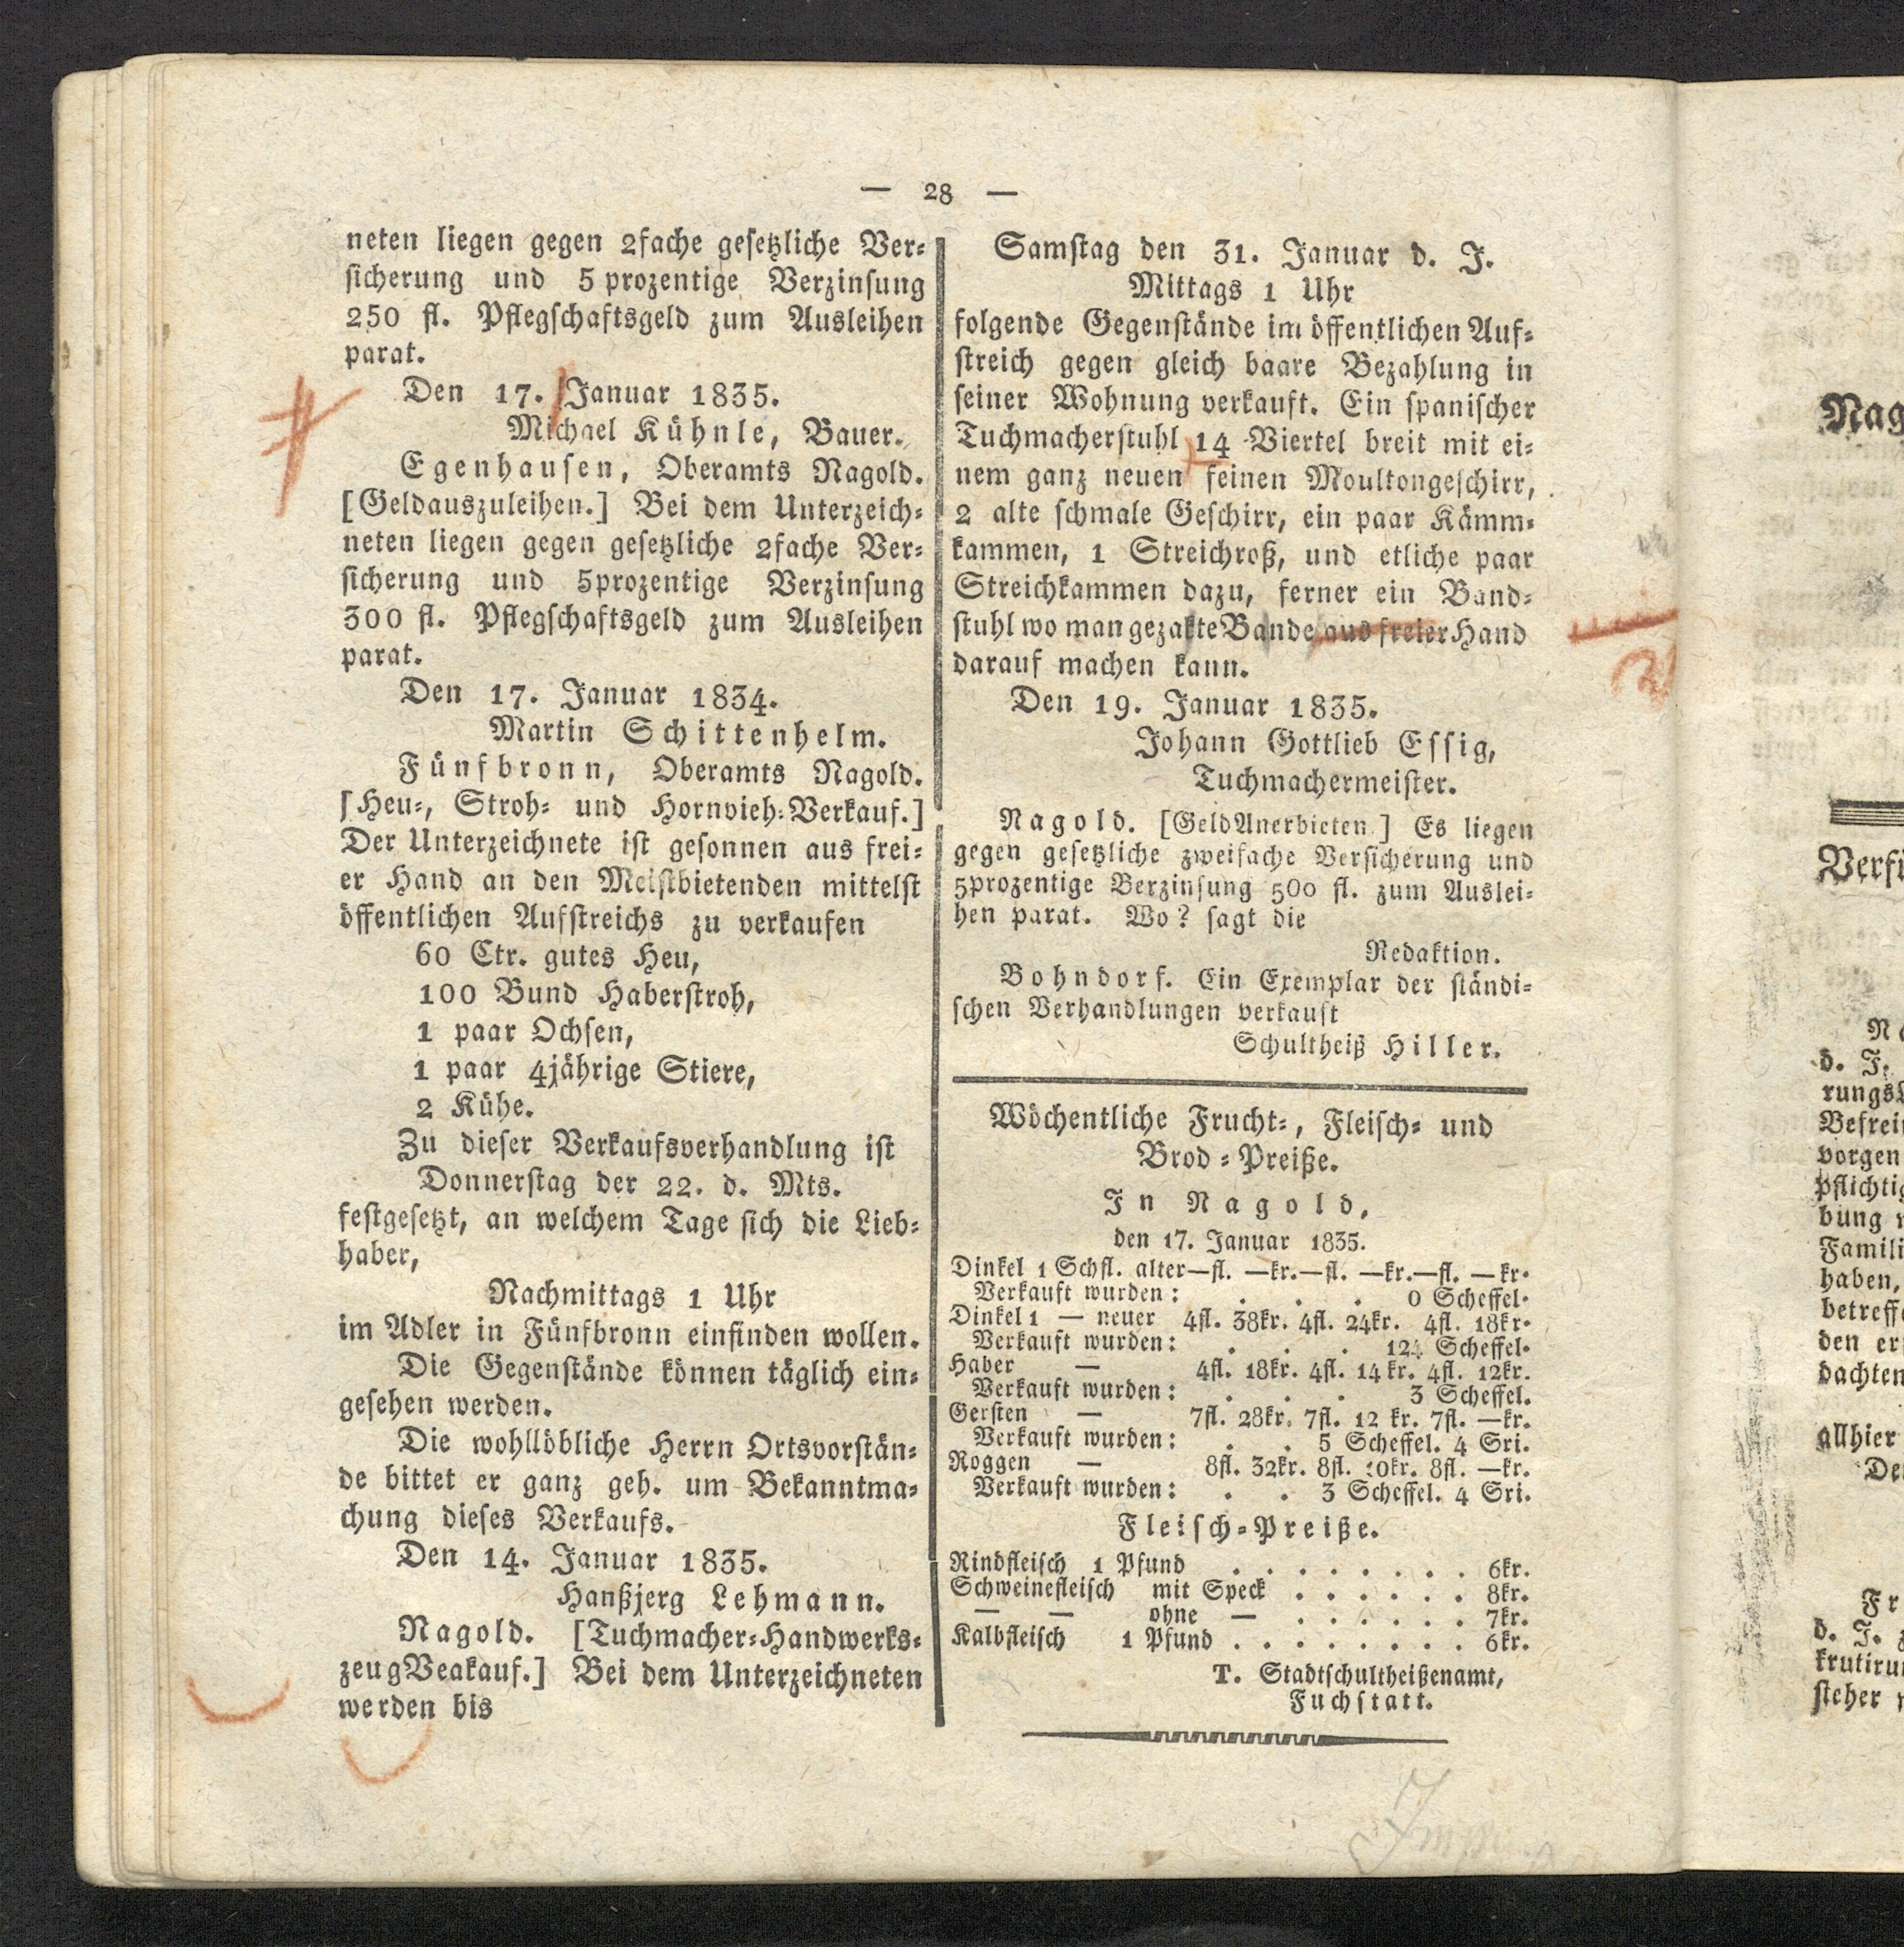 — 28 —
neten liegen gegen 2fache gesetzliche Ver=
sicherung und 5 prozentige Verzinsung
250 fl. Pflegschaftsgeld zum Ausleihen
parat.
Den 17. Januar 1835.
Michael Kühnle, Bauer.
Egenhausen, Oberamts Nagold.
[Geldauszuleihen.] Bei dem Unterzeich=
neten liegen gegen gesetzliche 2fache Ver=
sicherung und 5prozentige Verzinsung
300 fl. Pflegschaftsgeld zum Ausleihen
parat.
Den 17. Januar 1834.
Martin Schittenhelm.
Fünfbronn, Oberamts Nagold.
[Heu=, Stroh= und Hornvieh=Verkauf.]
Der Unterzeichnete ist gesonnen aus frei=
er Hand an den Meistbietenden mittelst
öffentlichen Aufstreichs zu verkaufen
60 Ctr. gutes Heu,
100 Bund Haberstroh,
1 paar Ochsen,
1 paar 4jährige Stiere,
2 Kühe.
Zu dieser Verkaufsverhandlung ist
Donnerstag der 22. d. Mts.
festgesetzt, an welchem Tage sich die Lieb=
haber,
Nachmittags 1 Uhr
im Adler in Fünfbronn einfinden wollen.
Die Gegenstände können täglich ein=
gesehen werden.
Die wohllöbliche Herrn Ortsvorstän=
de bittet er ganz geh. um Bekanntma=
chung dieses Verkaufs.
Den 14. Januar 1835.
Hanßjerg Lehmann.
Nagold. [Tuchmacher=Handwerks=
zeugVeakauf.] Bei dem Unterzeichneten
werden bis
Samstag den 31. Januar d. J.
Mittags 1 Uhr
folgende Gegenstände im öffentlichen Auf=
streich gegen gleich baare Bezahlung in
seiner Wohnung verkauft. Ein spanischer
Tuchmacherstuhl 14 Viertel breit mit ei=
nem ganz neuen feinen Moultongeschirr,
2 alte schmale Geschirr, ein paar Kämm=
kammen, 1 Streichroß, und etliche paar
Streichkammen dazu, ferner ein Band=
stuhl wo man gezakte Bande aus freier Hand
darauf machen kann.
Den 19. Januar 1835.
Johann Gottlieb Essig,
Tuchmachermeister.
Nagold. [GeldAnerbieten.] Es liegen
gegen gesetzliche zweifache Versicherung und
5prozentige Verzinsung 500 fl. zum Auslei=
hen parat. Wo? sagt die
Redaktion.
Bohndorf. Ein Exemplar der ständi=
schen Verhandlungen verkauft
Schultheiß Hiller.
Wöchentliche Frucht=, Fleisch= und
Brod=Preiße.
In Nagold,
den 17. Januar 1835.
Dinkel 1 Schfl. alter—fl. —kr.—fl. —kr.—fl. —kr.
Verkauft wurden: . . . 0 Scheffel.
Dinkel 1 — neuer 4fl. 38kr. 4fl. 24kr. 4fl. 18kr.
Verkauft wurden: . . . 124 Scheffel.
Haber — 4fl. 18kr. 4fl. 14kr. 4fl. 12kr.
Verkauft wurden: . . . 3 Scheffel.
Gersten — 7fl. 28kr. 7fl. 12 kr. 7fl. —kr.
Verkauft wurden: . . 5 Scheffel. 4 Sri.
Roggen — 8fl. 32kr. 8fl. 10kr. 8fl. —kr.
Verkauft wurden: . . 3 Scheffel. 4 Sri.
Fleisch=Preiße.
Rindfleisch 1 Pfund . . . . . . . . 6kr.
Schweinefleisch mit Speck . . . . . . 8kr.
— — ohne — . . . . . . 7kr.
Kalbfleisch 1 Pfund . . . . . . . . 6kr.
T. Stadtschultheißenamt,
Fuchstatt.
Nag
Versi
d. J.
rungs
Befrei
vorgen
pflichtig
bung
Famili
haben,
betreff
den er
dachten
allhier
De
Fr
d. J.
krutiru
steher